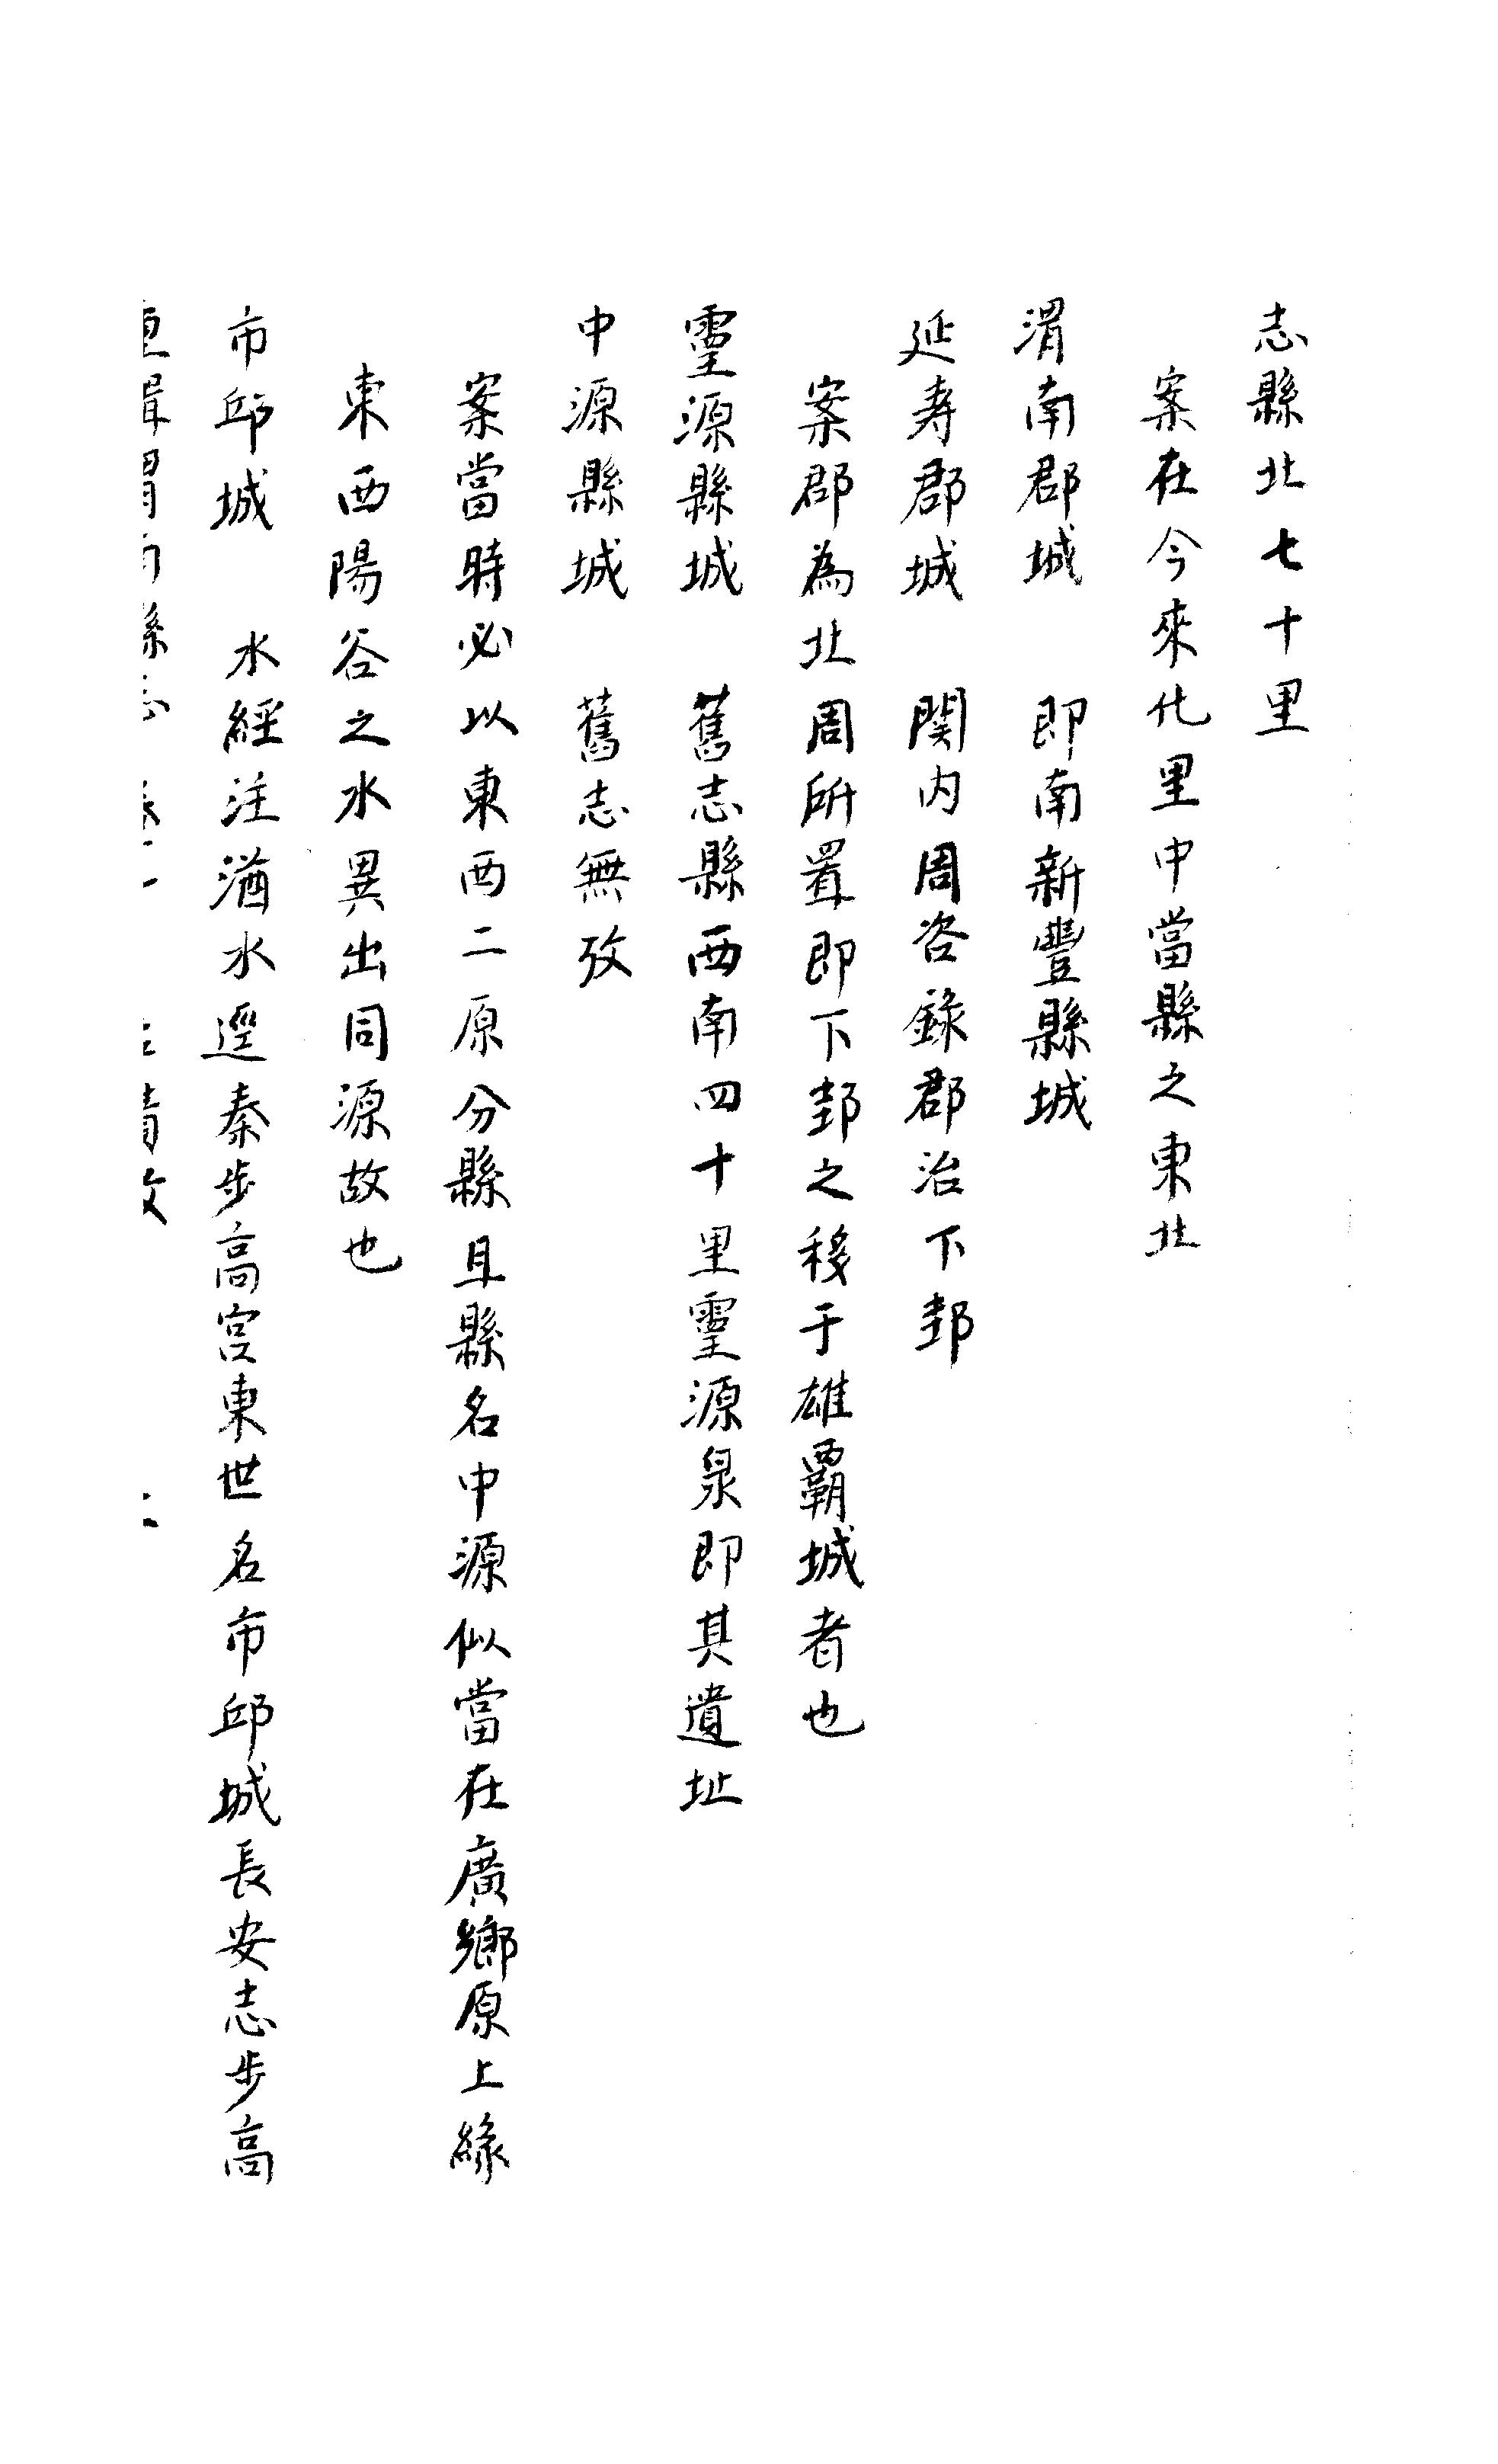 志縣北七十里
案在今來化里中當縣之東北
渭南郡城　即南新豐縣城
延寿郡城　関內周咨錄郡治下邽
案郡為北周所置即下邽之移于雄霸城者也
靈源縣城　舊志縣西南四十里靈源泉即其遺址
中源縣城　舊志無攷
案當時必以東西二原分縣且縣名中源似當在廣鄉原上緣
東西陽谷之水異出同源故也
市邱城　水經注湭水逕秦步高宮東世名市邱城長安志步高